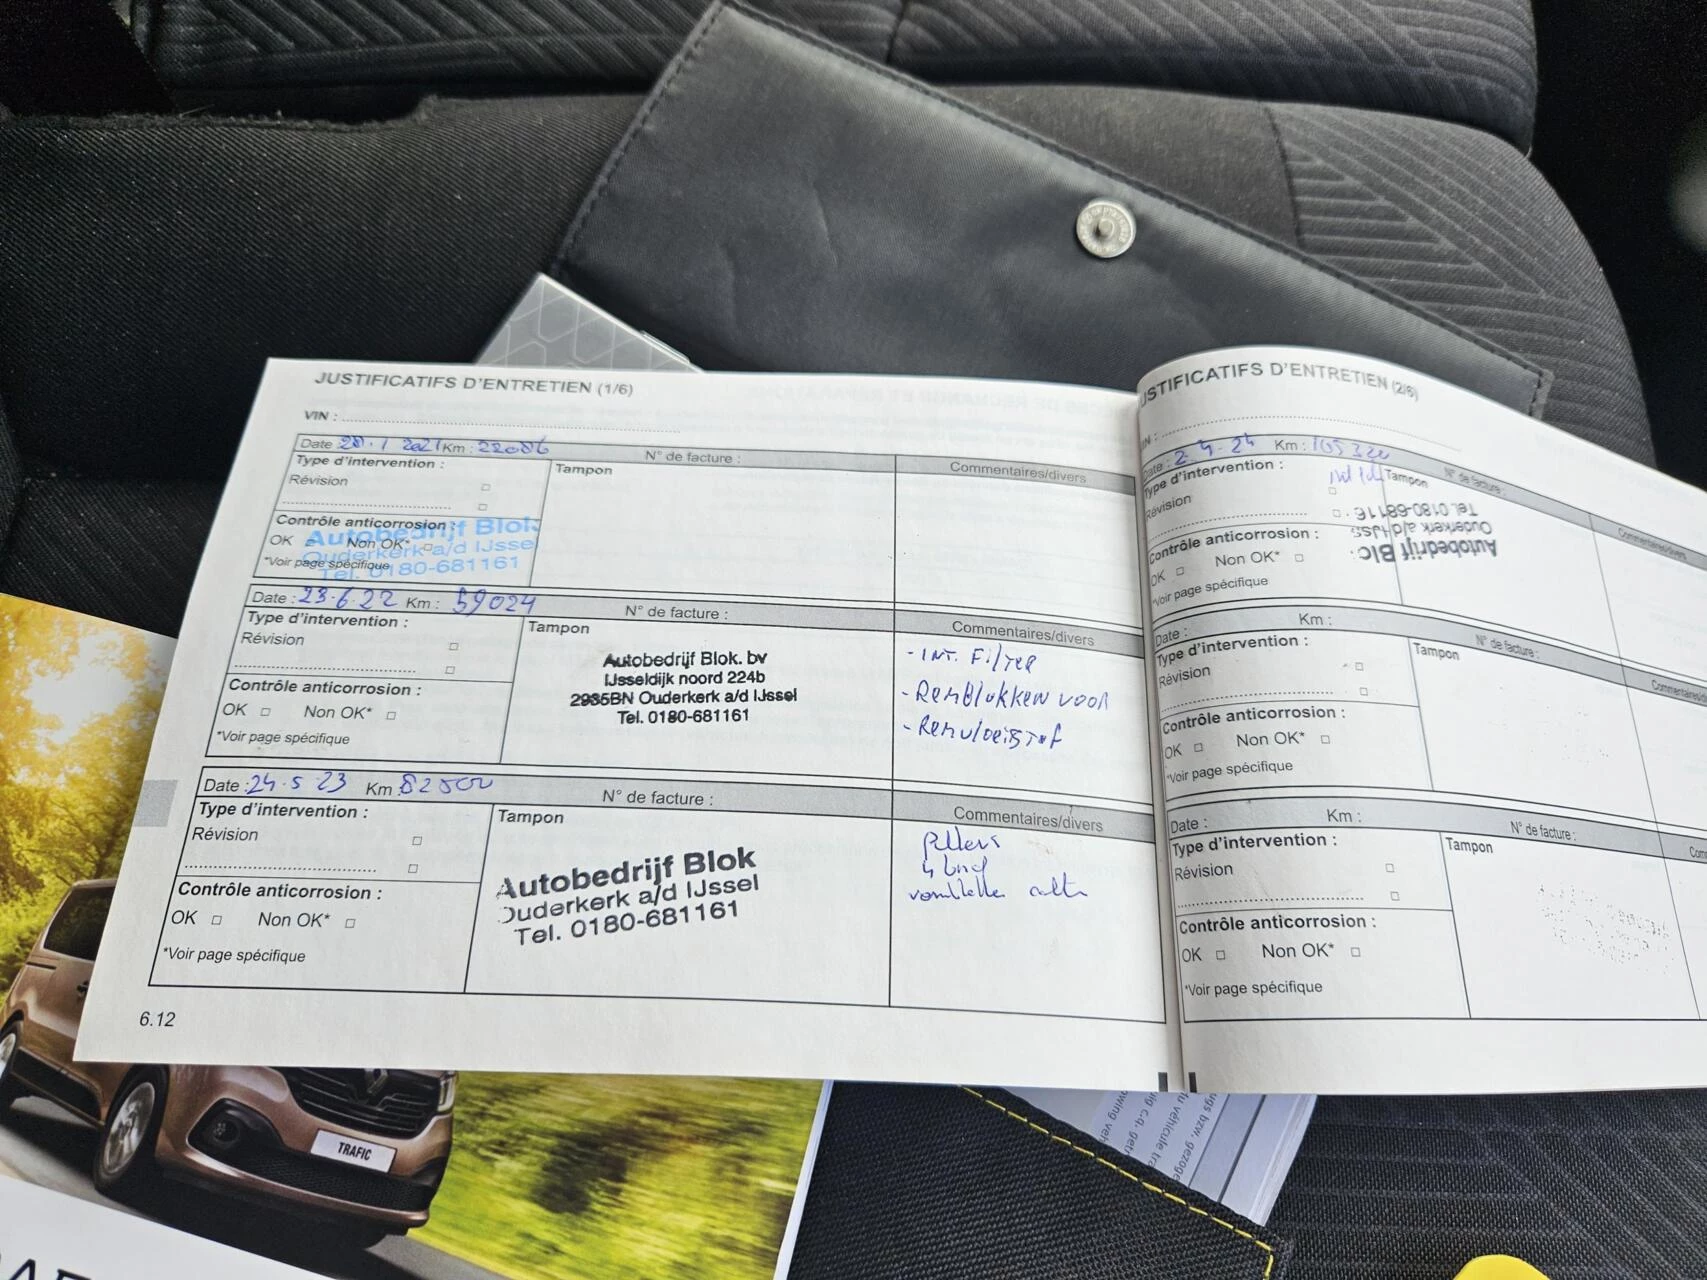 JUSTIFICATIFS D'ENTRETIEN (1/6)
VIN :
Date : 20.1 2021 Km : 22086
N° de facture :
Commentaires/divers
Type d'intervention :
Tampon
Révision
Contrôle anticorrosion :
OK Non OK*
*Voir page spécifique
Autobedrijf Blok
Ouderkerk a/d IJssel
Tel. 0180-681161
Date : 23.6.22 Km : 59024
N° de facture :
Commentaires/divers
Type d'intervention :
Tampon
Révision
Contrôle anticorrosion :
OK Non OK*
*Voir page spécifique
Autobedrijf Blok. bv
IJsseldijk noord 224b
2935BN Ouderkerk a/d IJssel
Tel. 0180-681161
- INT. FILTER
- REMBLOKKEN VOOR
- REMVLOEISTOF
Date : 24.5.23 Km : 82500
N° de facture :
Commentaires/divers
Type d'intervention :
Tampon
Révision
Contrôle anticorrosion :
OK Non OK*
*Voir page spécifique
Autobedrijf Blok
Ouderkerk a/d IJssel
Tel. 0180-681161
4
6.12
JUSTIFICATIFS D'ENTRETIEN (2/6)
Date : 2.4.24 Km : 105320
N° de facture :
Commentaires/divers
Type d'intervention :
Tampon
Révision
Contrôle anticorrosion :
OK Non OK*
*Voir page spécifique
Autobedrijf Blo
Ouderkerk a/d IJss
Tel. 0180-68116
Date : Km :
N° de facture :
Type d'intervention :
Tampon
Révision
Contrôle anticorrosion :
OK Non OK*
*Voir page spécifique
Date : Km :
N° de facture :
Com
Type d'intervention :
Tampon
Révision
Contrôle anticorrosion :
OK Non OK*
*Voir page spécifique
TRAFIC